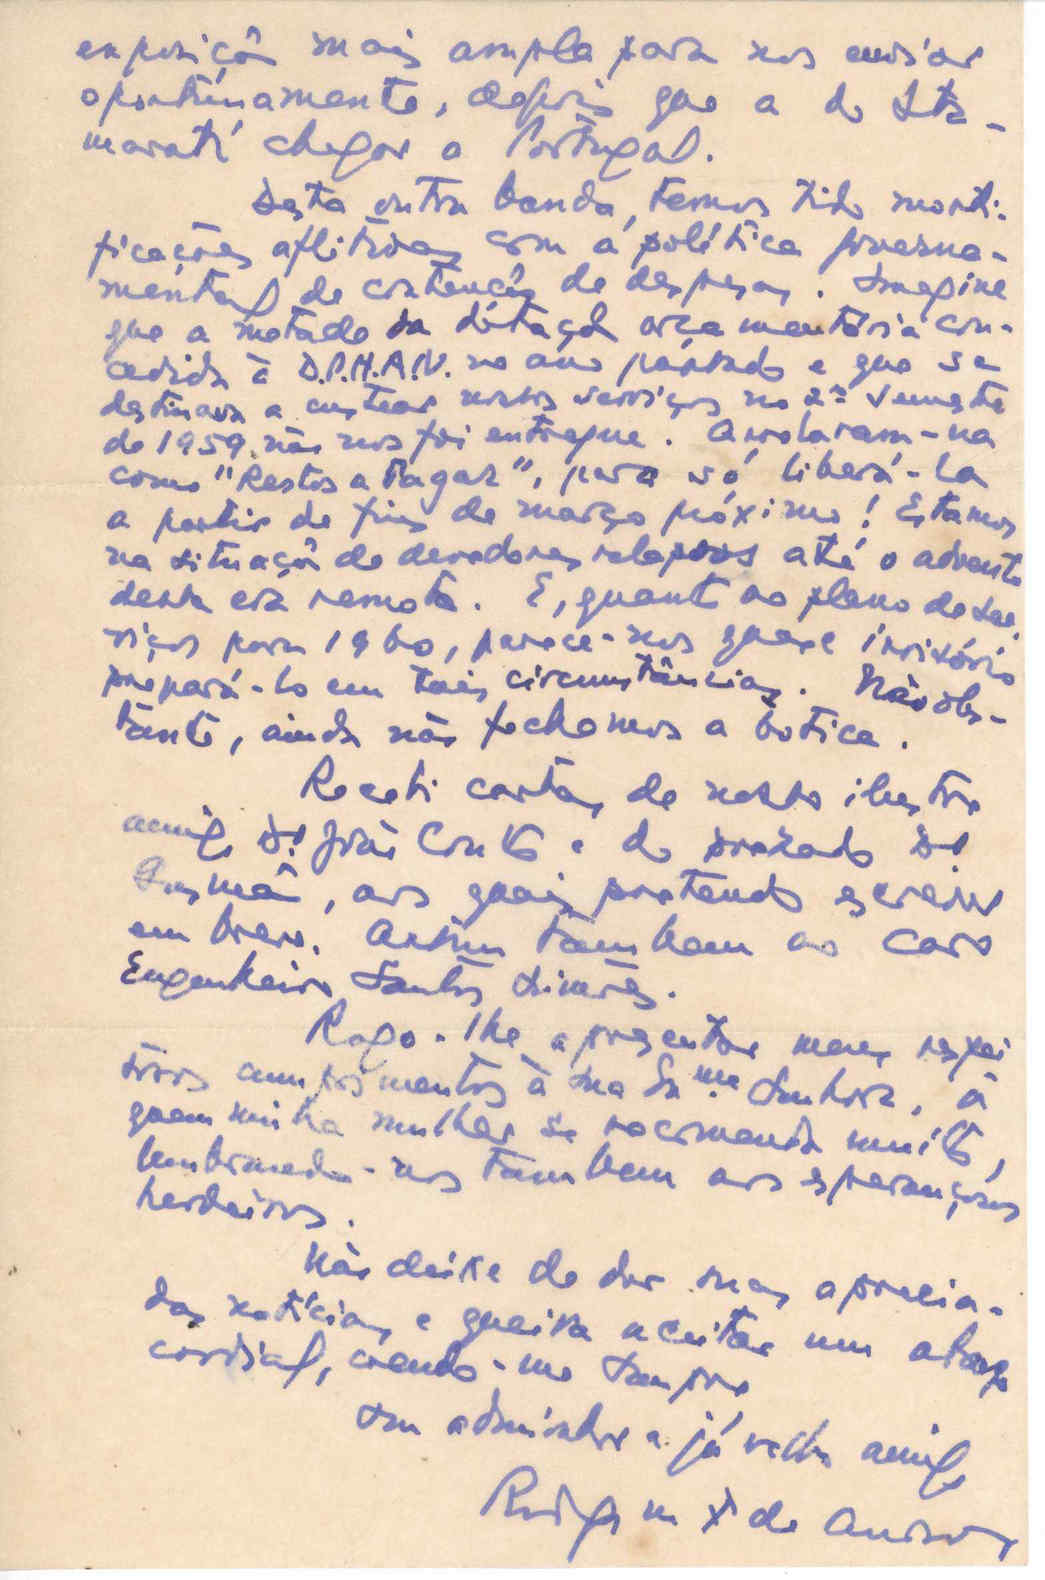 exposição mais ampla para nos enviar
oportunamente, depois que a do Ita-
marati chegar a Portugal.
Desta outra banda, temos tido morti-
ficações aflitivas com a política governa-
mental de contenção de despesas. Imagine
que a metade da dotação orçamentária con-
cedida à D.P.H.A.N. no ano passado e que se
destinava a custear nossos serviços no 2º semestre
de 1959 não nos foi entregue. Arrolaram-na
como "Restos a Pagar", para só liberá-la
a partir de fins de março próximo! Estamos
na situação de devedores relapsos até o advento
desta era remota. E, quanto ao plano de ser-
viços para 1960, parece-nos quase irrisório
prepará-lo em tais circunstâncias. Não obs-
tante, ainda não fechamos a botica.
Recebi cartas de nosso ilustre
amigo Dr. João Couto e do prezado Dr.
Gusmão, aos quais pretendo escrever
em breve. Assim tambem ao caro
Engenheiro Santos Simões.
Rogo-lhe apresentar meus respei
tosos cumprimentos à sua Exma Senhora, à
quem minha mulher se recomenda muito,
lembrando-nos tambem aos esperançosos
herdeiros.
Não deixe de dar suas aprecia-
das notícias e queira aceitar um abraço
cordial, crendo-me sempre
seu admirador e já velho amigo
Rodrigo M F de Andrade